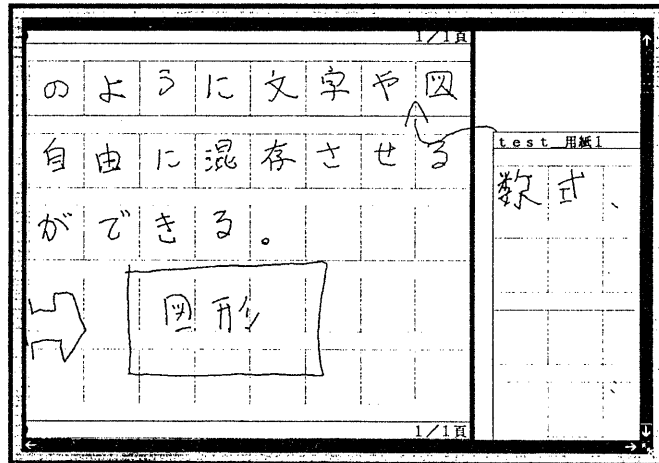 1/1頁
のように文字や図
自由に混存させる
ができる。
図形
1/1頁
test_用紙1
数式、